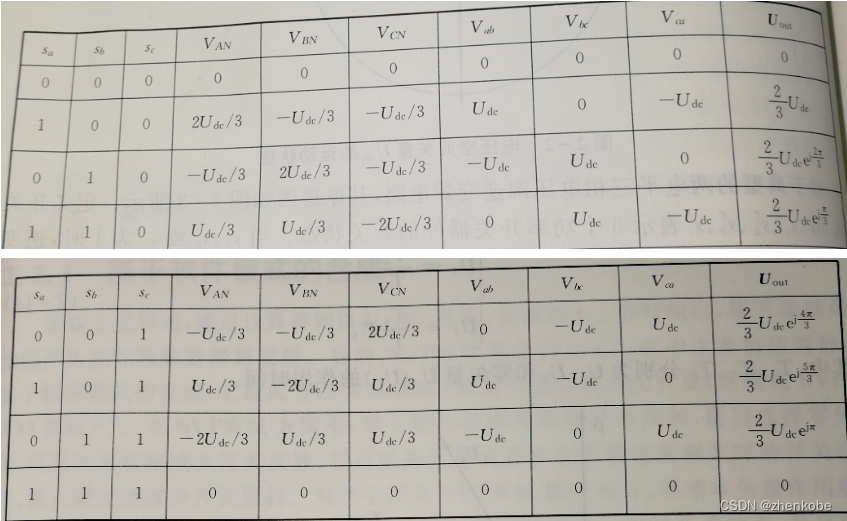 sa sb sc VAN VBN VCN Vab Vbc Vca Uout
0 0 0 0 0 0 0 0 0 0
1 0 0 2Udc/3 −Udc/3 −Udc/3 Udc 0 −Udc 2/3 Udc
0 1 0 −Udc/3 2Udc/3 −Udc/3 −Udc Udc 0 2/3 Udc e^j2π/3
1 1 0 Udc/3 Udc/3 −2Udc/3 0 Udc −Udc 2/3 Udc e^jπ/3
sa sb sc VAN VBN VCN Vab Vbc Vca Uout
0 0 1 −Udc/3 −Udc/3 2Udc/3 0 −Udc Udc 2/3 Udc e^j4π/3
1 0 1 Udc/3 −2Udc/3 Udc/3 Udc −Udc 0 2/3 Udc e^j5π/3
0 1 1 −2Udc/3 Udc/3 Udc/3 −Udc 0 Udc 2/3 Udc e^jπ
1 1 1 0 0 0 0 0 0 0
CSDN @zhenkobe